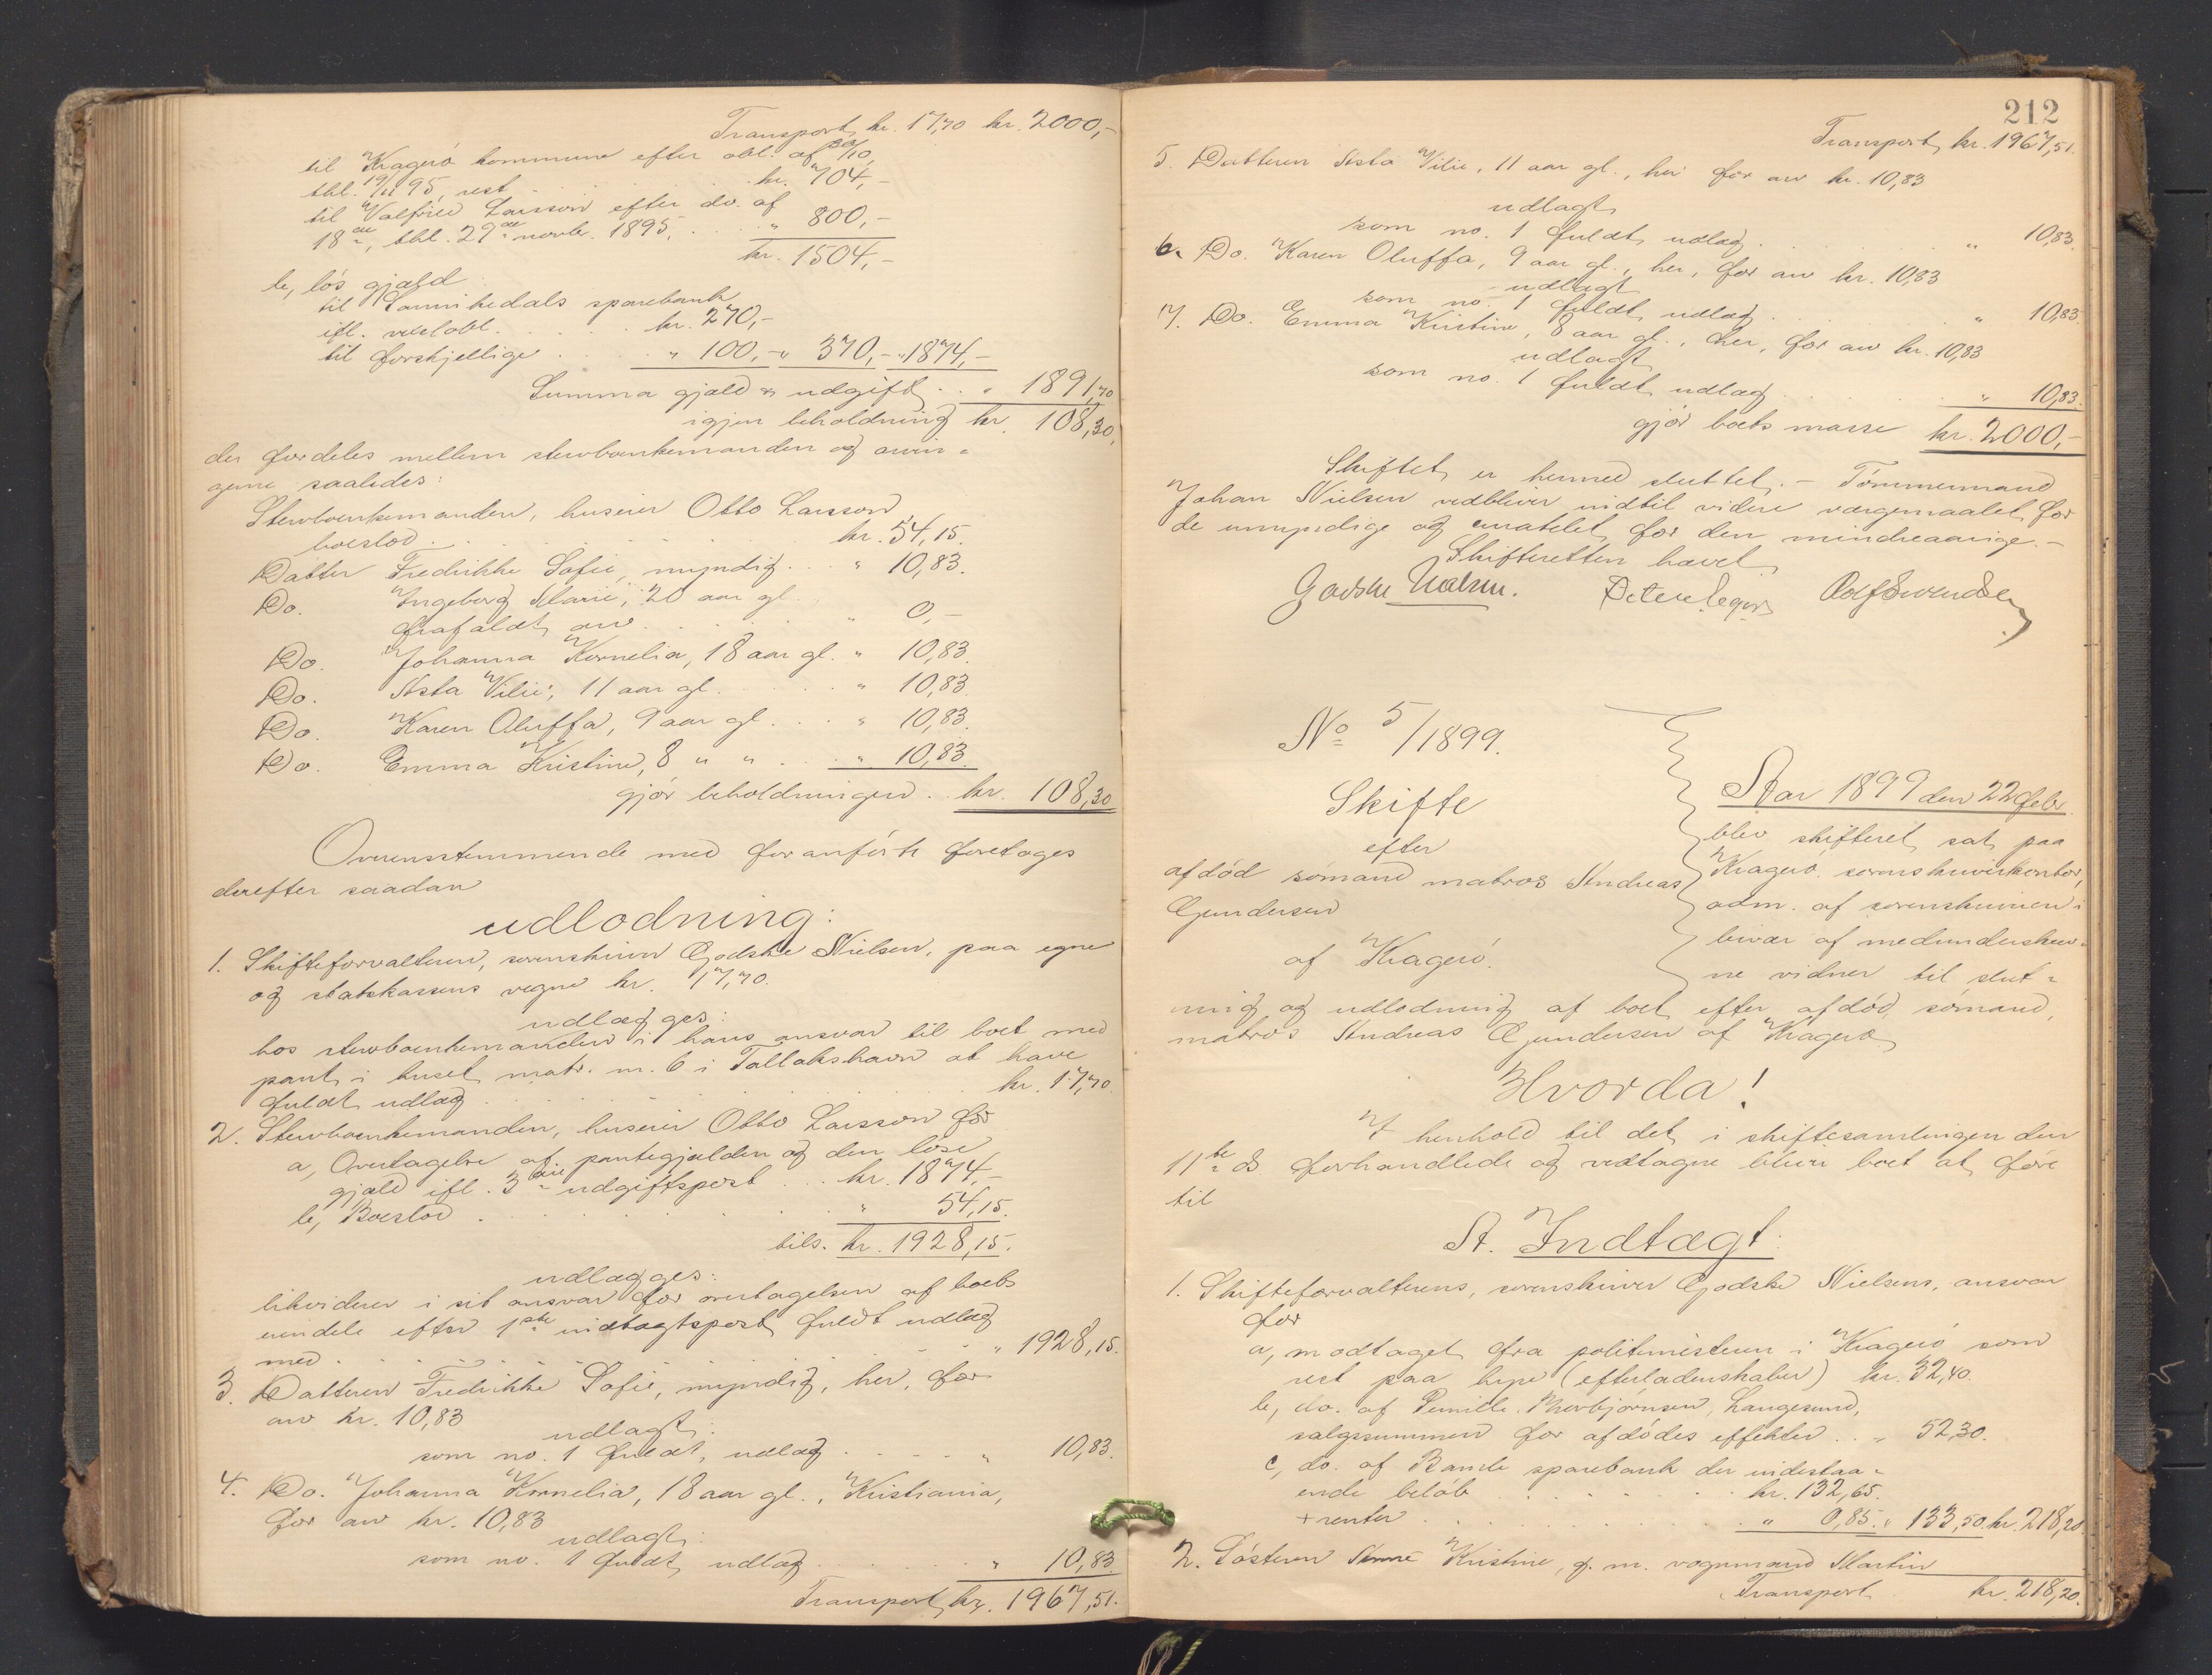 Transport kr. 17,70 kr. 2000,-
til Kragerø kommune efter obl. af 30/10,
thl. 19/11 95, rest . . . . kr. 704,-
til Valfried Larsson efter do. af
18de, thl. 29de novbr. 1895, . . . " 800,-
kr. 1504,-
b, løs gjæld
til Sannikedals sparebank
ifl. vexelobl. . . . . kr. 270,-
til forskjellige . . . " 100,- " 370,- " 1874,-
Summa gjæld & udgift . . " 1891,70
igjen beholdning kr. 108,30,
der fordeles mellem stervboenkemanden og arvin-
gerne saaledes:
Stervboenkemanden, huseier Otto Larsson,
boeslod . . . . kr. 54,15.
Datter Fredrikke Sofie, myndig . . " 10,83.
Do. Ingeborg Marie, 20 aar gl.
frafaldt arv . . . . " 0,-
Do. Johanna Kornelia, 18 aar gl. " 10,83.
Do. Asta Vilie, 11 aar gl. . . . " 10,83.
Do. Karen Oluffa, 9 aar gl. . . . " 10,83.
Do. Emma Kristine, 8 " " . . . " 10,83.
gjør beholdningen . . kr. 108,30
Overensstemmende med foranførte foretages
derefter saadan
udlodning:
1. Skifteforvalteren, sorenskriver Godske Nielsen, paa egne
og statskassens vegne kr. 17,70.
udlægges:
hos stervboenkemanden i hans ansvar til boet med
pant i huset matr. nr. 6 i Tallakshavn at have
fuldt udlæg . . . . kr. 17,70.
2. Stervboenkemanden, huseier Otto Larsson for
a, Overtagelse af pantegjælden og den løse
gjæld ifl. 3die udgiftspost . . . kr. 1874,-
b, Boeslod . . . . " 54,15.
tils. kr. 1928,15.
udlægges:
likviderer i sit ansvar for overtagelsen af boets
eiendele efter 1ste indtægtspost fuldt udlæg
med . . . . " 1928,15.
3. Datteren Fredrikke Sofie, myndig, her, for
arv kr. 10,83
udlagt:
som no. 1 fuldt udlæg . . . . " 10,83.
4. Do. Johanna Kornelia, 18 aar gl., Kristiania,
for arv kr. 10,83
udlagt:
som no. 1 fuldt udlæg . . . . " 10,83
Transport kr. 1967,51.
212
Transport kr. 1967,51.
5. Datteren Asta Vilie, 11 aar gl., her for arv kr. 10,83
udlagt
som no. 1 fuldt udlæg . . . . " 10,83.
6. Do. Karen Oluffa, 9 aar gl., her, for arv kr. 10,83
udlagt
som no. 1 fuldt udlæg . . . . " 10,83.
7. Do. Emma Kristine, 8 aar gl., her, for arv kr. 10,83
udlagt
som no. 1 fuldt udlæg . . . . " 10,83.
gjør boets masse kr. 2000,-
Skiftet er hermed sluttet. - Tømmermand
Johan Nielsen vedbliver indtil videre værgemaalet for
de umyndige og curatelet for den mindreaarige. -
Skifteretten hævet
Godske Nielsen.
No 5/1899.
Skifte
efter
afdød sømand matros Andreas
Gundersen
af Kragerø.
Aar 1899 den 22 febr.
blev skifteret sat paa
Kragerø sorenskriverkontor,
adm. af sorenskriveren i
bivær af medunderskrev-
ne vidner til slut-
ning og udlodning af boet efter afdød sømand,
matros Andreas Gundersen af Kragerø
Hvorda!
I henhold til det i skiftesamlingen den
11te ds. forhandlede og vedtagne bliver boet at føre
til
A. Indtægt:
1. Skifteforvalterens, sorenskriver Godske Nielsens, ansvar
for
a, modtaget fra politimesteren i Kragerø som
rest paa hyre (efterladenskaber) kr. 32,40.
b, do. af Pernille Thorbjørnsen, Langesund,
salgssummen for afdødes effekter . . " 52,30.
c, do. af Bamle sparebank der indestaa-
ende beløb . . . . kr. 132,65.
+ renter . . . . " 0,85. " 133,50. kr. 218,20
2. Søsteren Anne Kristine, g. m. vognmand Martin
Transport kr. 218,20.